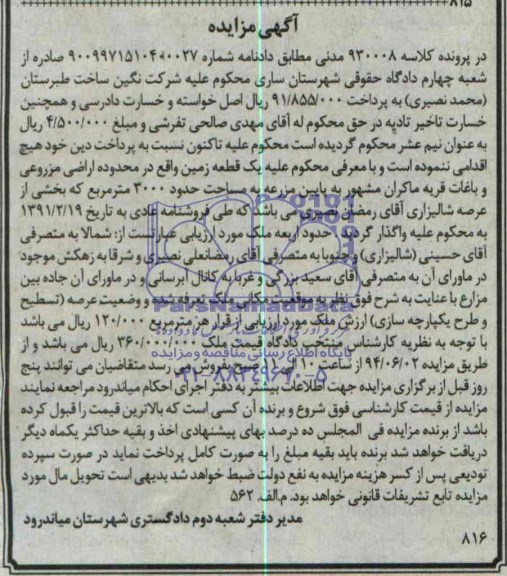 ۸۱۵
آگهی مزایده
در پرونده کلاسه ۹۳۰۰۰۸ مدنی مطابق دادنامه شماره ۹۰۰۹۹۷۱۵۱۰۴۰۰۰۲۷ صادره از
شعبه چهارم دادگاه حقوقی شهرستان ساری محکوم علیه شرکت نگین ساخت طبرستان
(محمد نصیری) به پرداخت ۹۱/۸۵۵/۰۰۰ ریال اصل خواسته و خسارت دادرسی و همچنین
خسارت تاخیر تادیه در حق محکوم له آقای مهدی صالحی تفرشی و مبلغ ۴/۵۰۰/۰۰۰ ریال
به عنوان نیم عشر محکوم گردیده است محکوم علیه تاکنون نسبت به پرداخت دین خود هیچ
اقدامی ننموده است و با معرفی محکوم علیه یک قطعه زمین واقع در محدوده اراضی مزروعی
و باغات قریه ماکران مشهور به پایین مزرعه به مساحت حدود ۳۰۰۰ مترمربع که بخشی از
عرصه شالیزاری آقای رمضان نصیری می باشد که طی فروشنامه عادی به تاریخ ۱۳۹۱/۲/۱۹
به محکوم علیه واگذار گردید. حدود اربعه ملک مورد ارزیابی عبارتست از: شمالا به متصرفی
آقای حسینی (شالیزاری) و جنوبا به متصرفی آقای رمضانعلی نصیری و شرقا به زهکش موجود
در ماورای آن به متصرفی آقای سعید بزرگی و غربا به کانال آبرسانی و در ماورای آن جاده بین
مزارع با عنایت به شرح فوق نظر به موقعیت مکانی ملک تعرفه شده و وضعیت عرصه (تسطیح
و طرح یکپارچه سازی) ارزش ملک مورد ارزیابی از قرار هر مترمربع ۱۲۰/۰۰۰ ریال می باشد
با توجه به نظریه کارشناس منتخب دادگاه قیمت ملک ۳۶۰/۰۰۰/۰۰۰ ریال می باشد و از
طریق مزایده ۹۴/۰۶/۰۲ از ساعت ۱۰ الی ۱۱ صبح بفروش می رسد متقاضیان می توانند پنج
روز قبل از برگزاری مزایده جهت اطلاعات بیشتر به دفتر اجرای احکام میاندرود مراجعه نمایند
مزایده از قیمت کارشناسی فوق شروع و برنده آن کسی است که بالاترین قیمت را قبول کرده
باشد از برنده مزایده فی المجلس ده درصد بهای پیشنهادی اخذ و بقیه حداکثر یکماه دیگر
دریافت خواهد شد برنده باید بقیه مبلغ را به صورت کامل پرداخت نماید در صورت سپرده
تودیعی پس از کسر هزینه مزایده به نفع دولت ضبط خواهد شد بدیهی است تحویل مال مورد
مزایده تابع تشریفات قانونی خواهد بود. م.الف. ۵۶۲
مدیر دفتر شعبه دوم دادگستری شهرستان میاندرود
۸۱۶
ParsNamadData
پایگاه اطلاع رسانی مناقصه و مزایده